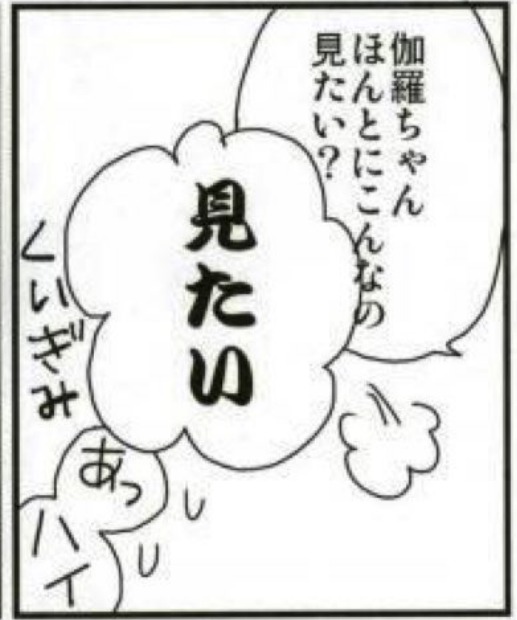 伽羅ちゃん
ほんとにこんなの
見たい?
見たい
くいぎみ
あっ
ハイ